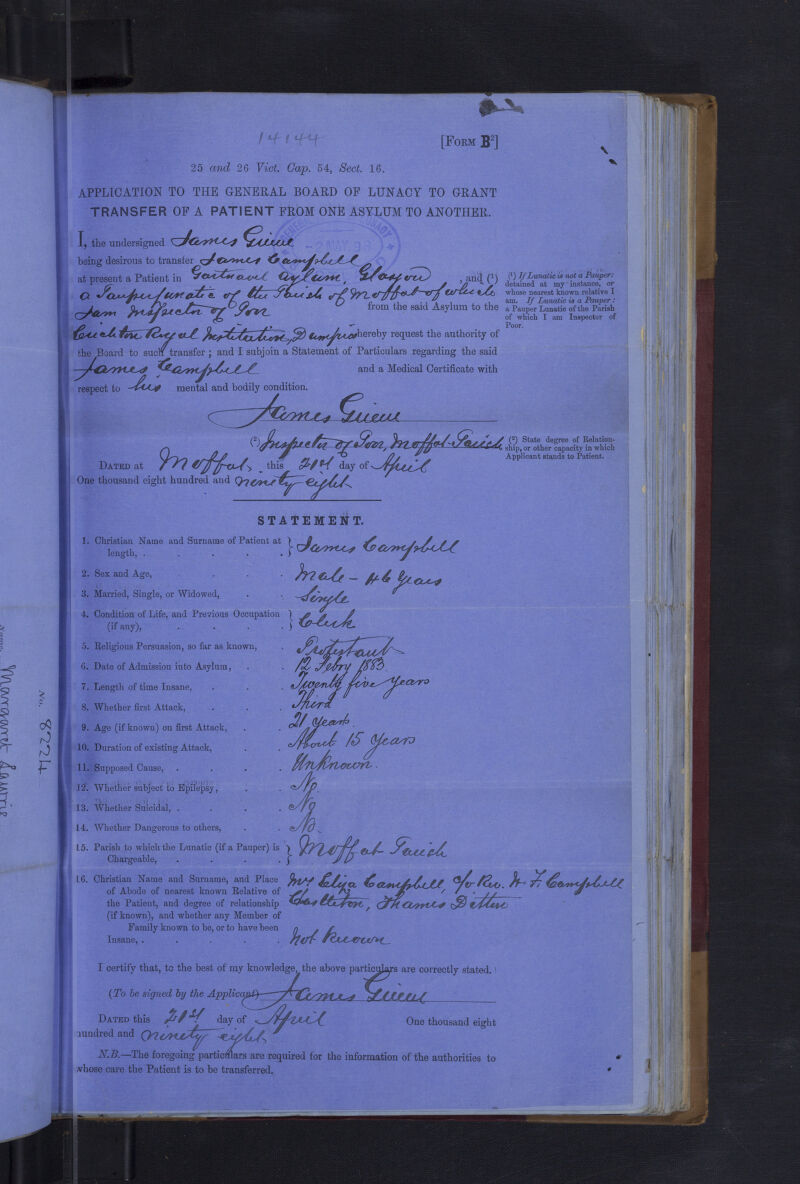 14144
[FORM B²]
25 and 26 Vict. Cap. 54, Sect. 16.
APPLICATION TO THE GENERAL BOARD OF LUNACY TO GRANT
TRANSFER OF A PATIENT FROM ONE ASYLUM TO ANOTHER.
I, the undersigned James
being desirous to transfer James Campbell
at present a Patient in Gartnavel Asylum, Glasgow, and (¹)
a Pauper Lunatic of the Parish of Moffat of which
I am Inspector of Poor from the said Asylum to the
Crichton Royal Institution, Dumfries hereby request the authority of
the Board to such transfer; and I subjoin a Statement of Particulars regarding the said
James Campbell and a Medical Certificate with
respect to his mental and bodily condition.
(¹) If Lunatic is not a Pauper:
detained at my instance, or
whose nearest known relative I
am. If Lunatic is a Pauper:
a Pauper Lunatic of the Parish
of which I am Inspector of
Poor.
James
(²) Inspector of Poor, Moffat Parish
(²) State degree of Relation-
ship, or other capacity in which
Applicant stands to Patient.
DATED at Moffat, this 21st day of April
One thousand eight hundred and ninety eight
STATEMENT.
1. Christian Name and Surname of Patient at
length, . . . . . } James Campbell
2. Sex and Age, . . . . Male - 46 years
3. Married, Single, or Widowed, . . Single
4. Condition of Life, and Previous Occupation
(if any), . . . . } Clerk
5. Religious Persuasion, so far as known, . Protestant
6. Date of Admission into Asylum, . . 12 Febry 1883
7. Length of time Insane, . . . Twenty five years
8. Whether first Attack, . . . Third
9. Age (if known) on first Attack, . . 21 years
10. Duration of existing Attack, . . About 15 years
11. Supposed Cause, . . . . Unknown.
12. Whether subject to Epilepsy, . . No
13. Whether Suicidal, . . . . No
14. Whether Dangerous to others, . . No
15. Parish to which the Lunatic (if a Pauper) is
Chargeable, . . . . } Moffat Parish
16. Christian Name and Surname, and Place
of Abode of nearest known Relative of
the Patient, and degree of relationship
(if known), and whether any Member of
Family known to be, or to have been
Insane, . . . . . .
Mrs Eliza Campbell, c/o Rev. W. F. Campbell
Thames Ditton
Not Known
I certify that, to the best of my knowledge, the above particulars are correctly stated.
(To be signed by the Applicant) James
DATED this 21st day of April One thousand eight
hundred and ninety eight
N.B.—The foregoing particulars are required for the information of the authorities to
whose care the Patient is to be transferred.
No. 8224
Margaret